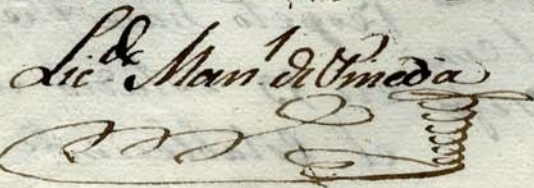 Licde Manl de Pineda